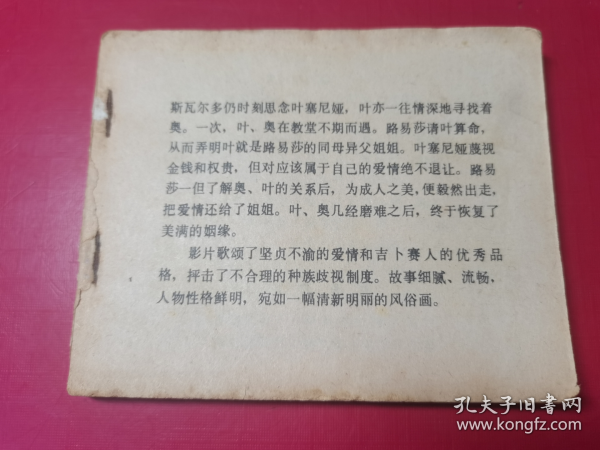 斯瓦尔多仍时刻思念叶塞尼娅，叶亦一往情深地寻找着
奥。一次，叶、奥在教堂不期而遇。路易莎请叶算命，
从而弄明叶就是路易莎的同母异父姐姐。叶塞尼娅蔑视
金钱和权贵，但对应该属于自己的爱情绝不退让。路易
莎一但了解奥、叶的关系后，为成人之美，便毅然出走，
把爱情还给了姐姐。叶、奥几经磨难之后，终于恢复了
美满的姻缘。
影片歌颂了坚贞不渝的爱情和吉卜赛人的优秀品
格，抨击了不合理的种族歧视制度。故事细腻、流畅，
人物性格鲜明，宛如一幅清新明丽的风俗画。
孔夫子旧书网
www.kongfz.com